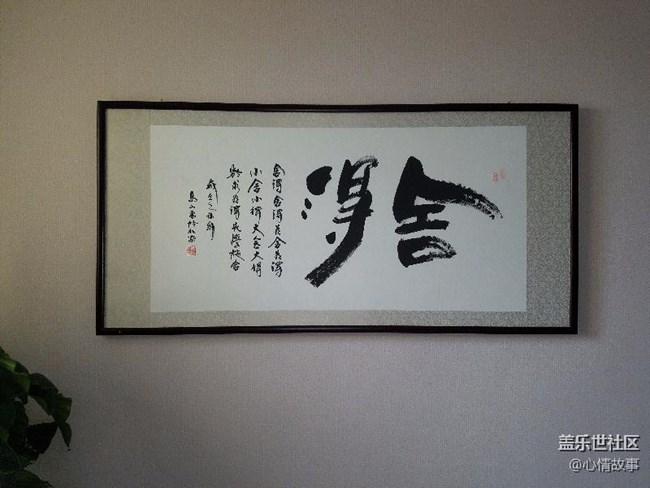 舍得
舍得舍得有舍有得
小舍小得大舍大得
欲求有得先學施舍
盖乐世社区
@心情故事